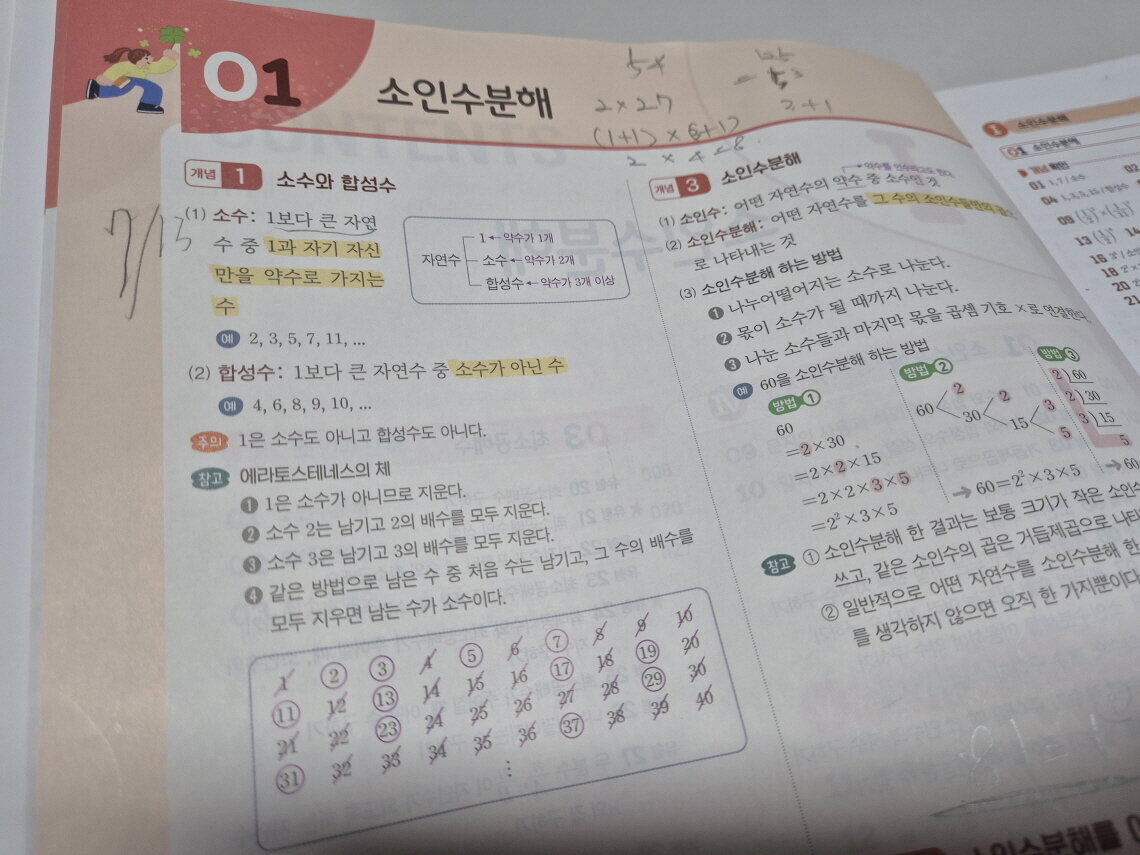 01 소인수분해
54
2×27
(1+1)×(3+1)
2×4=8
3+1
7/13
개념 1 소수와 합성수
(1) 소수: 1보다 큰 자연
수 중 1과 자기 자신
만을 약수로 가지는
수
자연수
1 ← 약수가 1개
소수 ← 약수가 2개
합성수 ← 약수가 3개 이상
예 2, 3, 5, 7, 11, ...
(2) 합성수: 1보다 큰 자연수 중 소수가 아닌 수
예 4, 6, 8, 9, 10, ...
주의 1은 소수도 아니고 합성수도 아니다.
참고 에라토스테네스의 체
❶ 1은 소수가 아니므로 지운다.
❷ 소수 2는 남기고 2의 배수를 모두 지운다.
❸ 소수 3은 남기고 3의 배수를 모두 지운다.
❹ 같은 방법으로 남은 수 중 처음 수는 남기고, 그 수의 배수를
모두 지우면 남는 수가 소수이다.
1 2 3 4 5 6 7 8 9 10
11 12 13 14 15 16 17 18 19 20
21 22 23 24 25 26 27 28 29 30
31 32 33 34 35 36 37 38 39 40
⋮
개념 3 소인수분해
약수를 인수라고도 한다.
(1) 소인수: 어떤 자연수의 약수 중 소수인 것
(2) 소인수분해: 어떤 자연수를 그 수의 소인수들만의
로 나타내는 것
(3) 소인수분해 하는 방법
❶ 나누어떨어지는 소수로 나눈다.
❷ 몫이 소수가 될 때까지 나눈다.
❸ 나눈 소수들과 마지막 몫을 곱셈 기호 ×로 연결한다.
예 60을 소인수분해 하는 방법
방법 1
60
=2×30
=2×2×15
=2×2×3×5
=2²×3×5
방법 2
60 2
30 2
15 3
5
방법 3
2) 60
2) 30
3) 15
5
→ 60=2²×3×5
→ 60=
참고 ① 소인수분해 한 결과는 보통 크기가 작은 소인수
쓰고, 같은 소인수의 곱은 거듭제곱으로 나타
② 일반적으로 어떤 자연수를 소인수분해 한
를 생각하지 않으면 오직 한 가지뿐이다.
소인수분해를
소인수분해
01 소인수분해
개념 확인
01 1, 7 / 소수
02
04
09
13
14
16
18
20
21